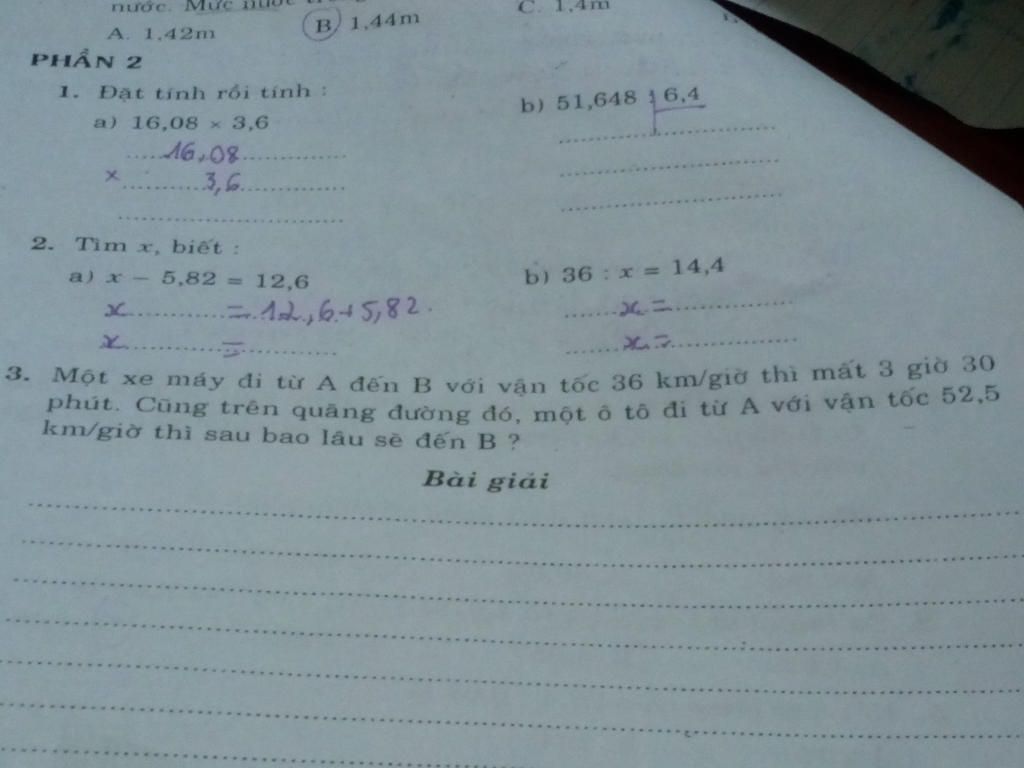 nước. Mực nước
A. 1,42m B 1,44m C. 1,4m
PHẦN 2
1. Đặt tính rồi tính :
a) 16,08 × 3,6 b) 51,648 6,4
16,08
× 3,6
2. Tìm x, biết :
a) x – 5,82 = 12,6 b) 36 : x = 14,4
x = 12,6 + 5,82. x =
x = x =
3. Một xe máy đi từ A đến B với vận tốc 36 km/giờ thì mất 3 giờ 30
phút. Cũng trên quãng đường đó, một ô tô đi từ A với vận tốc 52,5
km/giờ thì sau bao lâu sẽ đến B ?
Bài giải